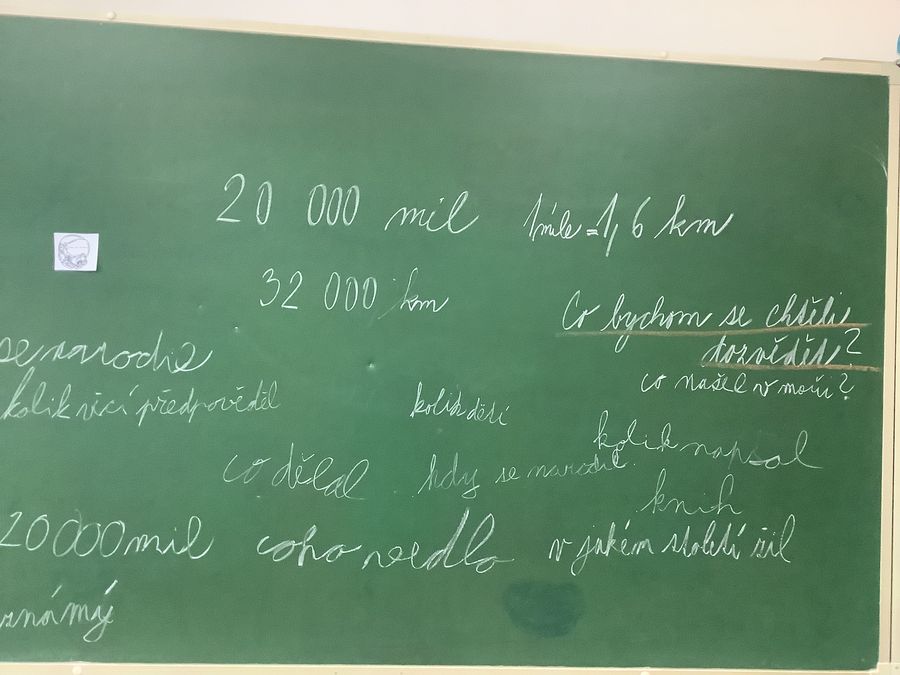 20 000 mil 1 míle = 1,6 km
32 000 km
Co bychom se chtěli
dozvědět?
co našel v moři?
se narodil
kolik věcí předpověděl
kolik dětí
kolik napsal
knih
co dělal
kdy se narodil.
20000 mil
coho
v jakém století žil
známý